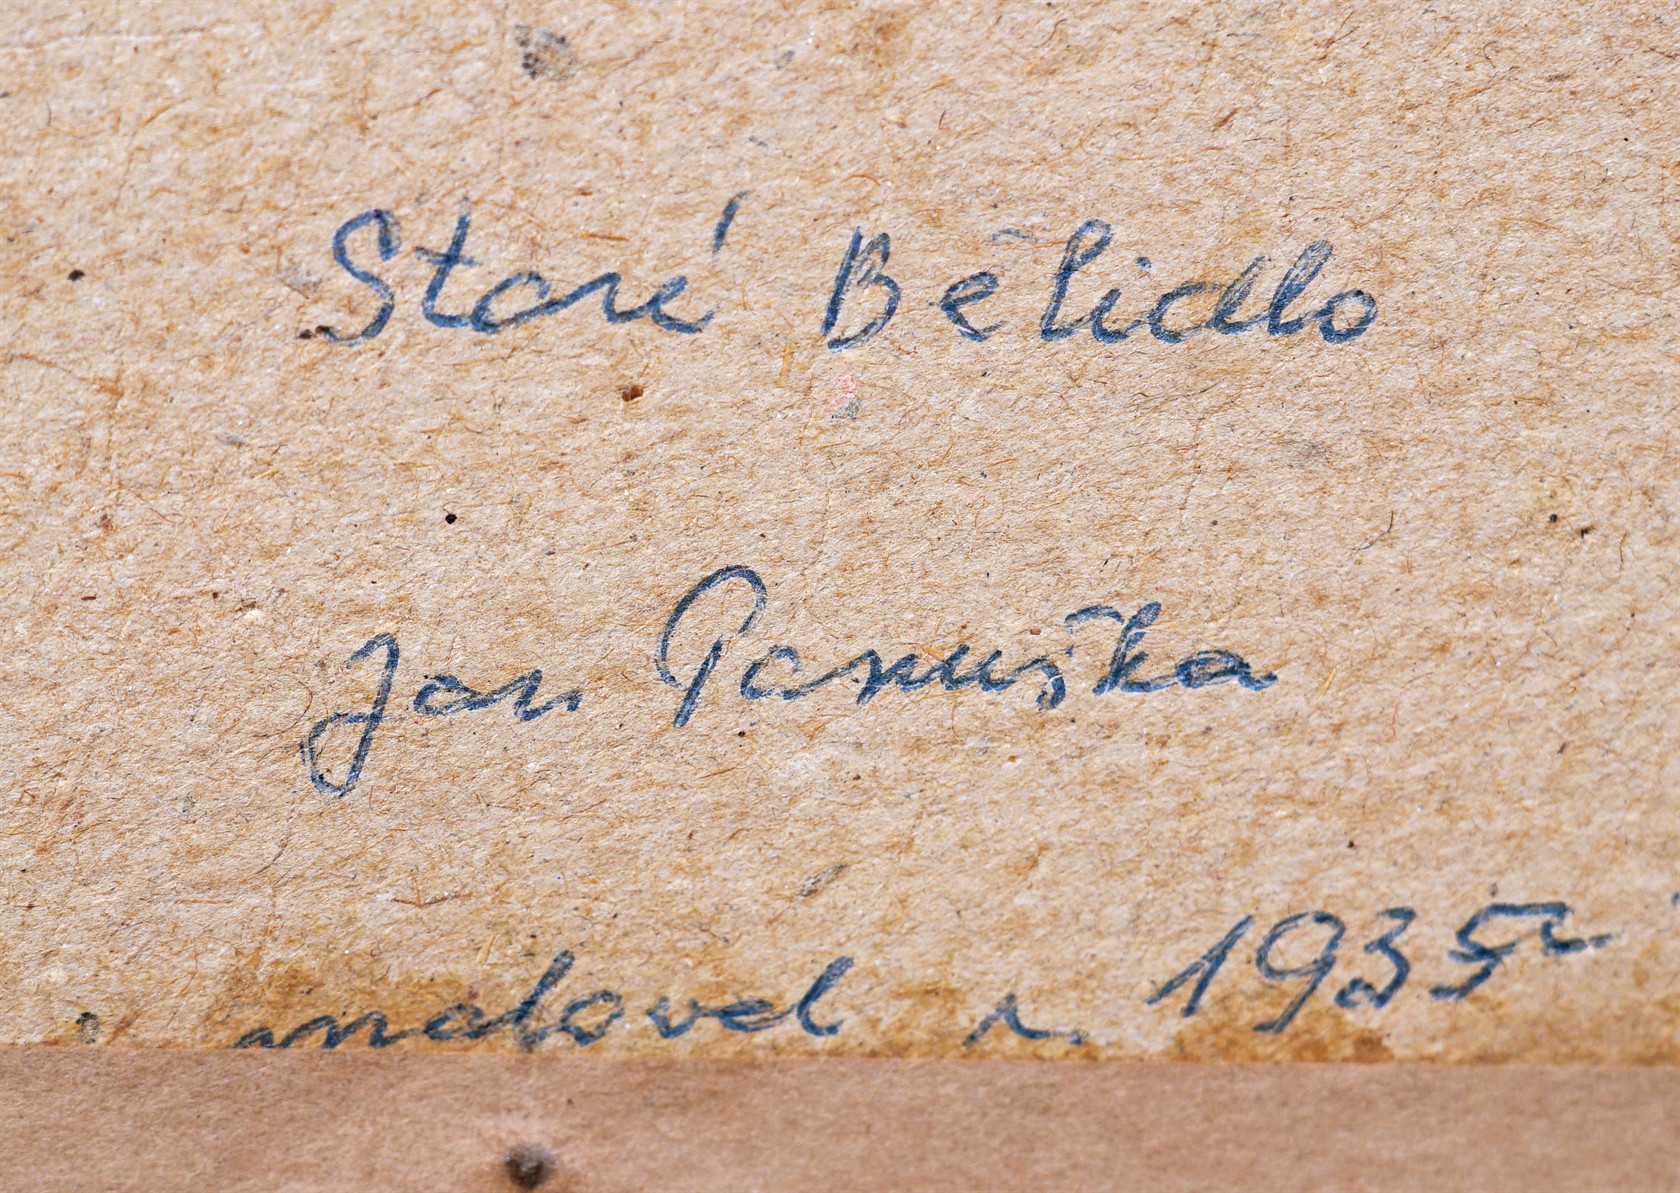 Staré Bělidlo
Jan Panuška
maloval r. 1935